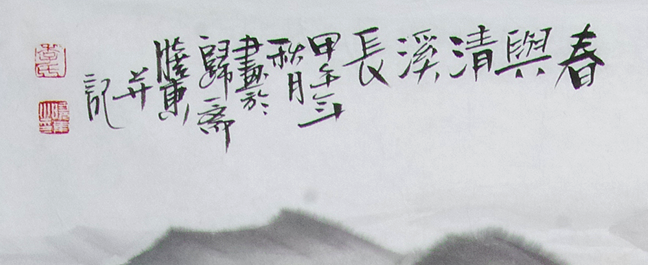 春與清溪長
甲午年
秋月
畫於
歸齋
并
記